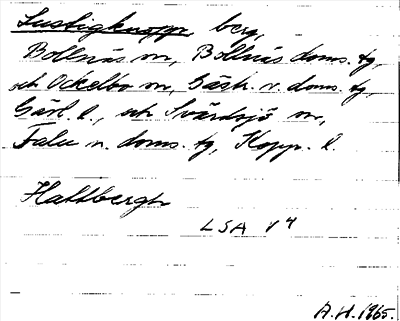 Lustigknopp, berg,
Bollnäs sn, Bollnäs doms. tg,
och Ockelbo sn, Gästr. v. doms. tg,
Gävl. l., och Svärdsjö sn,
Falu n. doms. tg, Kopp. l.
Hallbergh
LSA V 4
A.H. 1965.